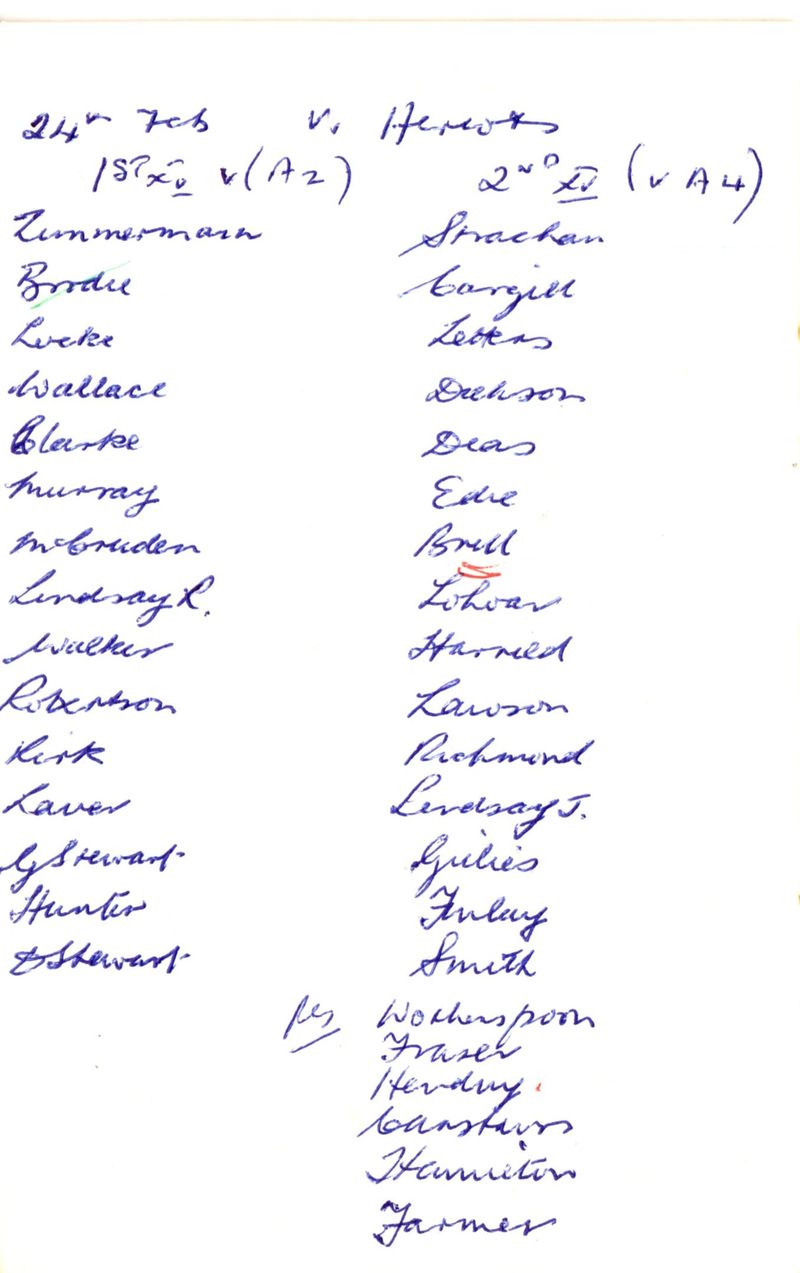 24th Feb v. Heriots
1ST XV v (A2) 2ND XV (v A4)
Zimmermann Strachan
Brodie Cargill
Locke Letters
Wallace Dickson
Clarke Deas
Murray Edie
McCruden Brill
Lindsay R. 
Walker Harried
Robertson Lawson
Kirk Richmond
Laver Lindsay J.
G Stewart Gillies
Hunter Finlay
D Stewart Smith
Res Wotherspoon
Fraser
Hendry
Carstairs
Hamilton
Farmer